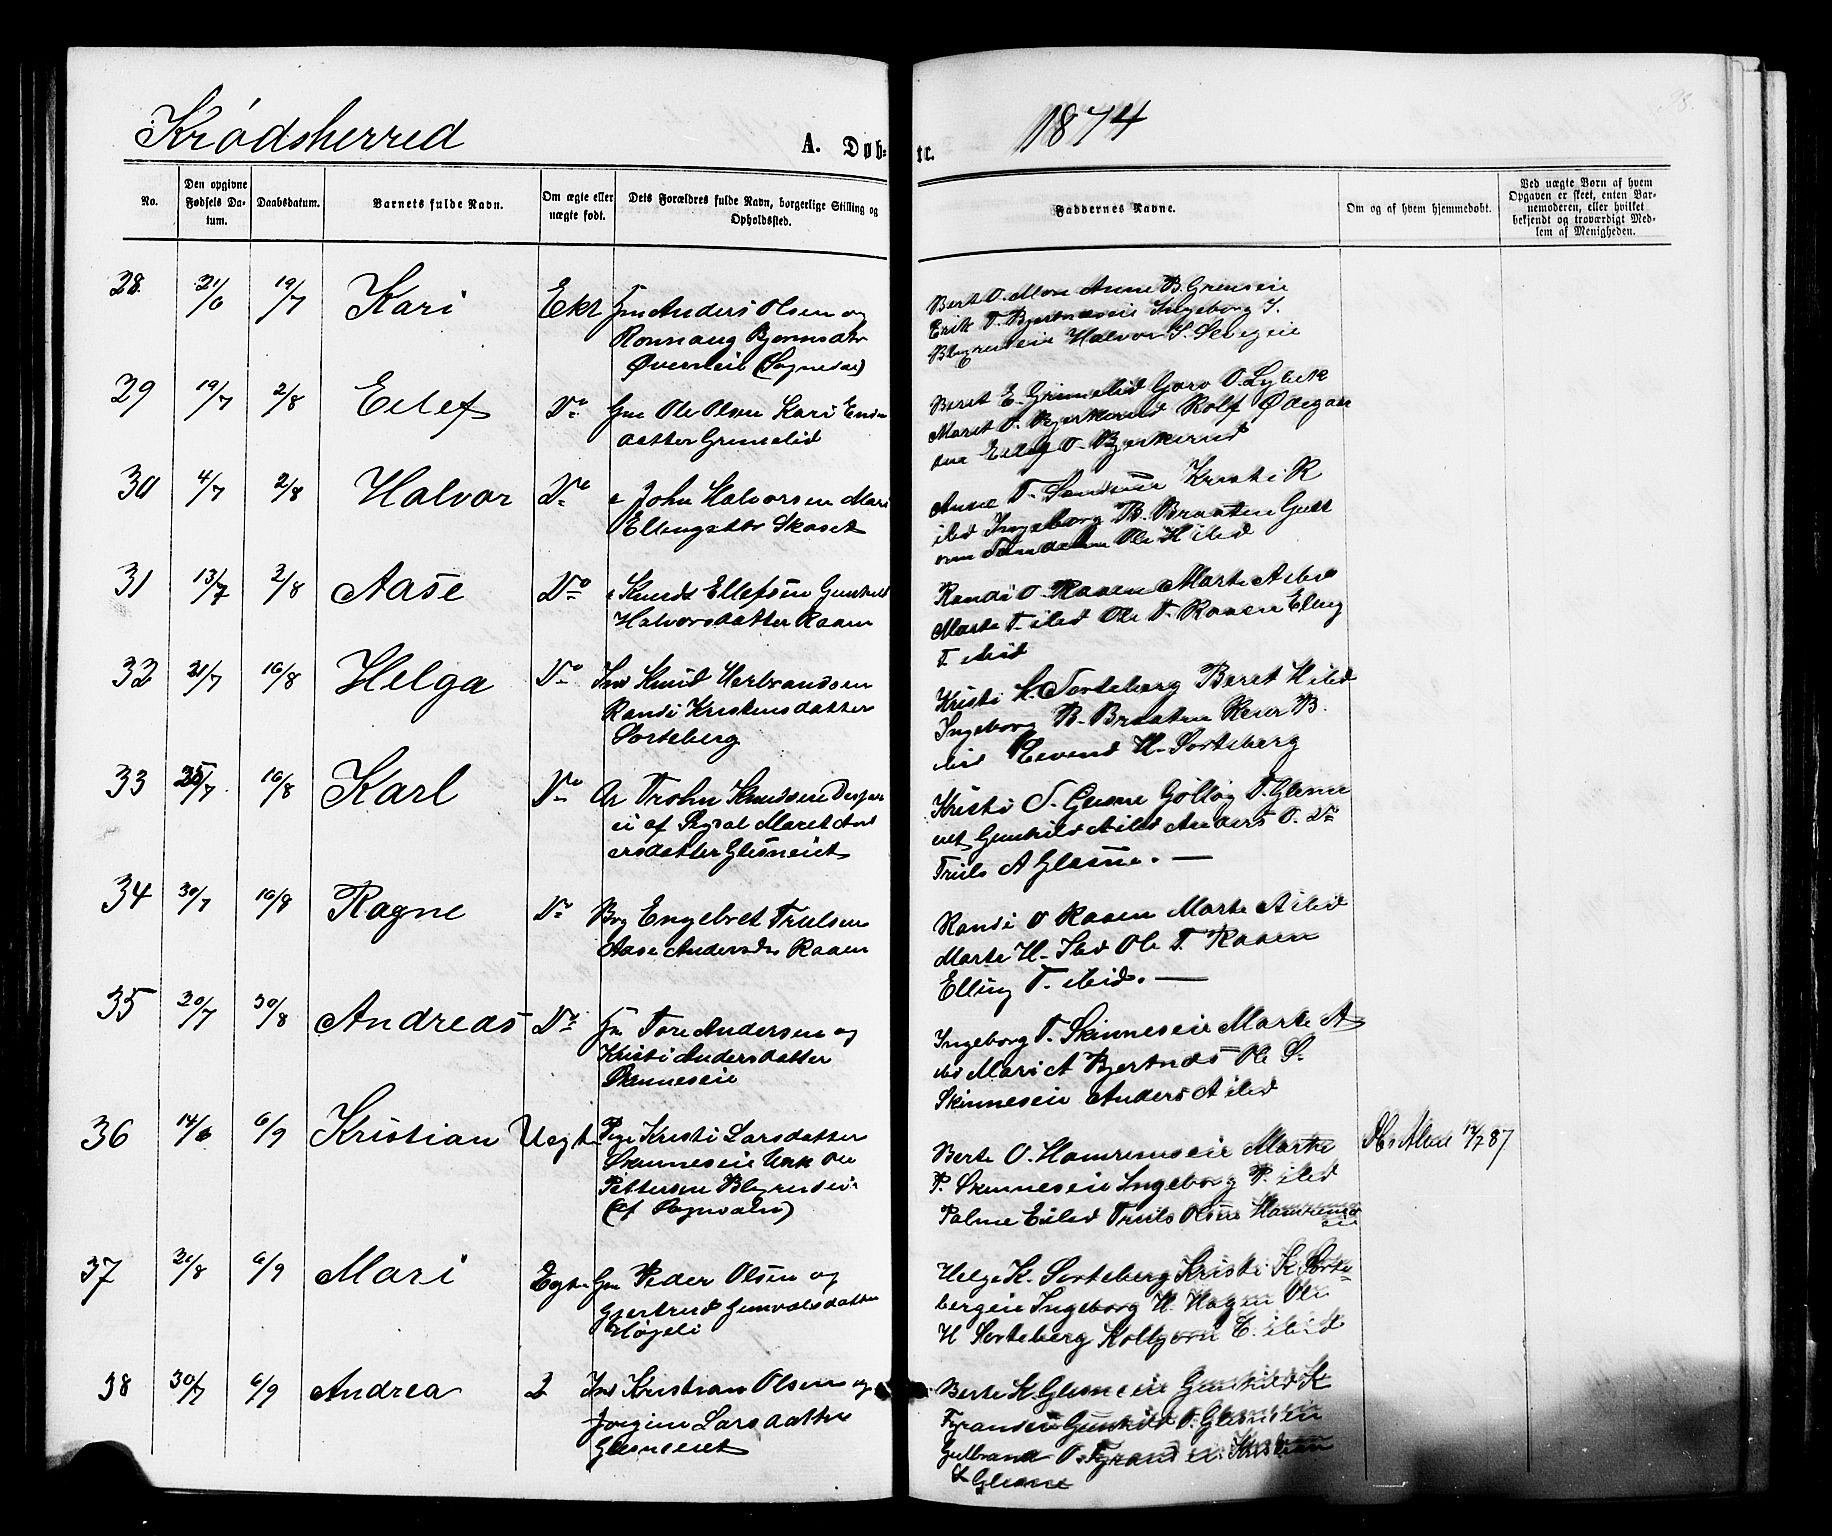 Krødsherred
A. Døb-
te.
1874
98.
No.
Den opgivne Fødsels Datum.
Daabsdatum.
Barnets fulde Navn.
Om ægte eller uægte født.
Dets Forældres fulde Navn, borgerlige Stilling og Opholdssted.
Faddernes Navne.
Om og af hvem hjemmedøbt.
Ved uægte Børn af hvem Opgaven er skeet, enten Barnemoderen, eller hvilket bekjendt og troværdigt Medlem af Menigheden.
28. 21/6 19/7 Kari Ekt Anders Olsen og
Ronnaug Bjornsdtr
Øvreneie (Sognedal)
Bert O. Moen Anne B. Grenseie
Erik T. Bjertnæseie Ingeborg I.
Halvor S.
29 19/7 2/8 Eilef Do Gm Ole Olsen Kari Enda
datter Grimelid
Beret E. Grimelid Guro O. Lybek
Maret O. Bjerkerud Rolf Ødegaar
den Eilef O. Bjerkerud
30 4/7 2/8 Halvor Do John Halvorsen Mari
Ellingsdtr Skaset
Anne T. Kristi R
ibid Ingeborg B. Braaten Gutt
orm Ole H ibid
31 13/7 2/8 Aase Do Knud Ellefsen Gunhild
Halvorsdatter Raaen
Randi O. Raaen Marte A ibid
Marte T. ibid Ole T. Raaen Elling
T. ibid
32 21/7 16/8 Helga Do Ind Knud Herbrandsen
Randi Kristensdatter
Sorteberg
Kristi K. Sorteberg Beret H ibid
Ingeborg B. Braaten Reier B.
ibid Eivend H. Sorteberg
33 25/7 16/8 Karl Do Ar Trohn Knudsen
af Maret And
ersdatter Glesneiet
Kristi T. Glesne Golløg T. Glesne
eiet Gunhild A ibid Anders O. Do
Truls A Glesne. —
34 30/7 16/8 Ragne Do Brg Engebret Trulsen
Aase Andersdr Raaen
Randi O Raaen Marte A ibid
Marte H. Ibid Ole T. Raaen
Elling T. ibid. —
35 20/7 30/8 Andreas Do Gm Tore Andersen og
Kristi Andersdatter
Skinneseie
Ingeborg T. Skinneseie Marte A
ibid Mari A Bjertnæs Ole S.
Skinneseie Anders A ibid
36 14/6 6/9 Kristian Uegt Pige Kristi Larsdatter
Skinneseie Unk Ole
Pettersen
(af Sognedalen)
Berte O. Hamremseie Marte
P. Skinneseie Ingeborg P. ibid
Palme E ibid Truls Olsen Hamremse
ie
17/7 87
37 21/8 6/9 Mari Egte Gm Peder Olsen og
Gjertrud Gunvalsdatter
Høgeli
Helge K. Sorteberg Kristi K Sorte-
bergeie Ingeborg H. Hagen Ole
H Sorteberg Kolbjørn E. ibid
38 30/7 6/9 Andrea D Ind Kristian Olsen og
Jorgine Larsdatter
Glesneeiet
Berte K. Glesneeie Gunhild K
Gunhild O. Glesneeie
Gulbrand O. Kristian
L Glesne